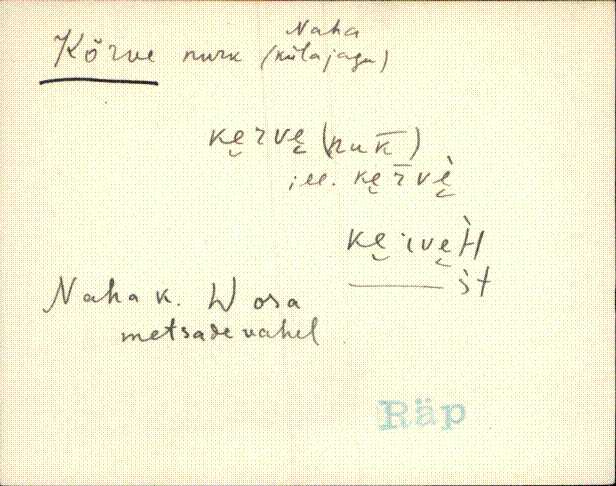 Naha
Kõrve nurk (külajagu)
ke̮rve̮ (nuk̄)
ill. ke̮r̄vè̮
ke̮rve̮H̀
——— st̀
Naha k. W osa
metsade vahel
Räp